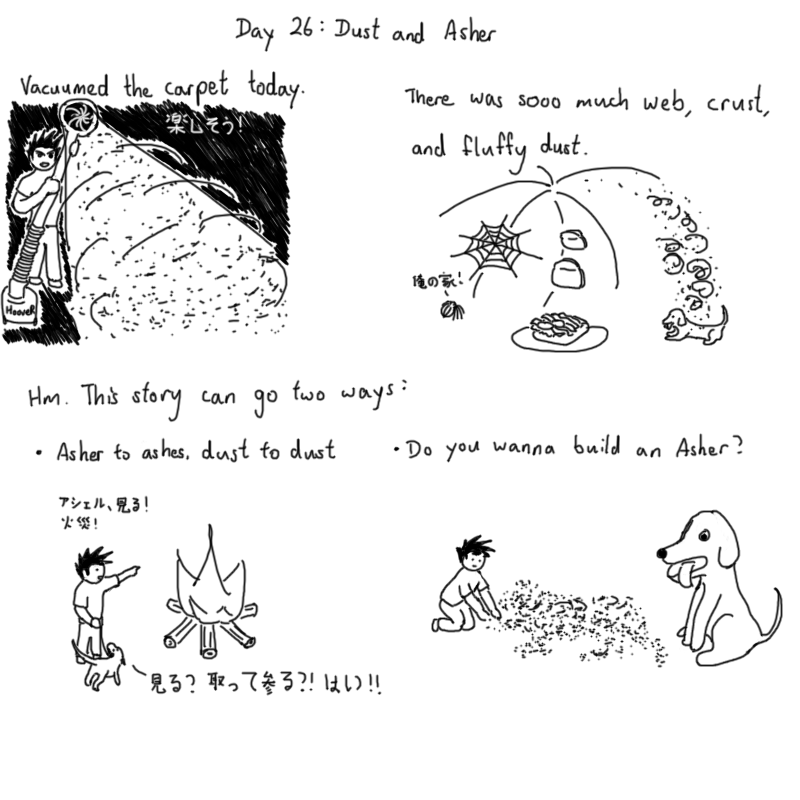 Day 26: Dust and Asher
Vacuumed the carpet today.
楽しそう!
Hoover
There was sooo much web, crust,
and fluffy dust.
俺の家!
Hm. This story can go two ways:
• Asher to ashes, dust to dust
アシェル、見る!
火災!
見る? 取って参る?! はい!!
• Do you wanna build an Asher?